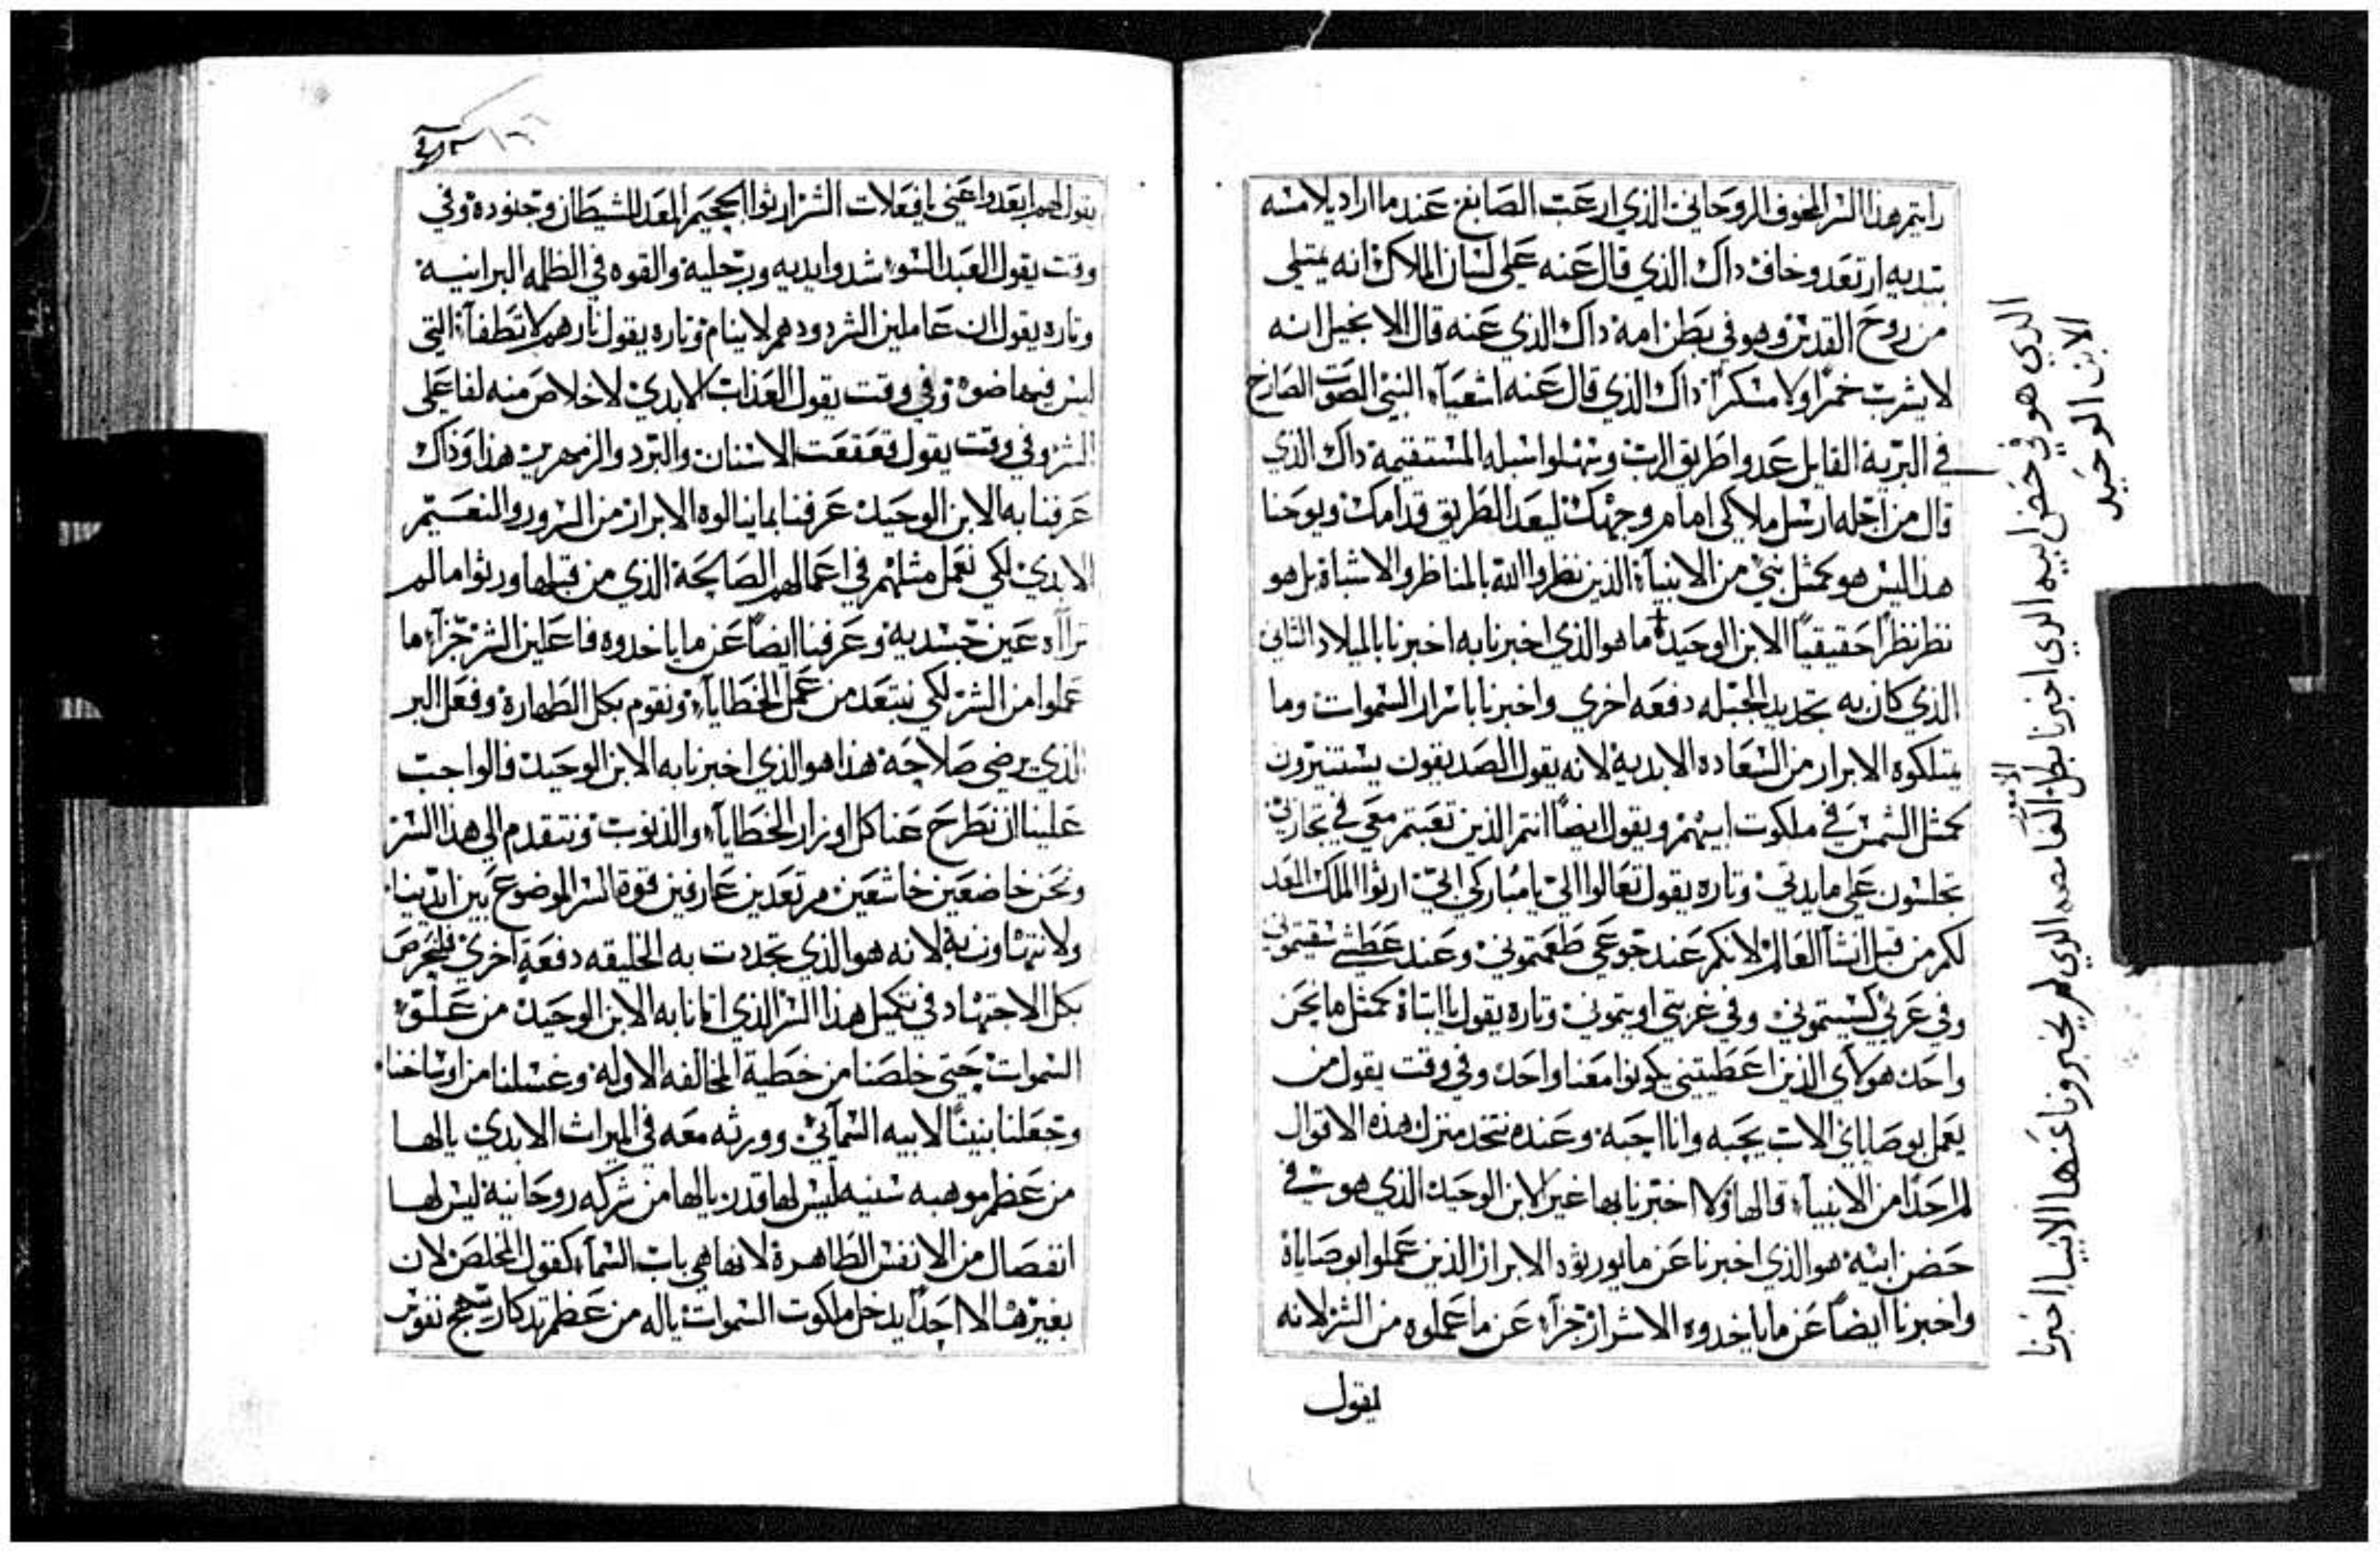 رايتم هذا السر المخوف الروحاني الذي ارعب الصابغ عندما اراد يلامسه
بيديه ارتعد وخاف داك الذي قال عنه على لسان الملاك انه يمتلي
من روح القدس وهو في بطن امه داك الذي عنه قال الانجيل انه
لا يشرب خمرا ولا مسكرا داك الذي قال عنه اشعياء النبي الصوت الصارخ
في البرية القايل عدوا طريق الرب وسهلوا سبله المستقيمه داك الذي
قال من اجله ارسل ملاكي امام وجهك ليعد الطريق قدامك ويوحنا
هذا ليس هو كمثل نبي من الانبياء الذين نظروا الله بالمناظر والاشباة بل هو
نظر نظرا حقيقيا الابن الوحيد ما هو الذي اخبرنا به اخبرنا بالميلاد الثاني
الذي كان به تجديد الجبله دفعه اخري واخبرنا باسرار السموات وما
يمتلكوه الابرار من السعاده الابدية لانه يقول الصديقون يستنيرون
كمثل الشمس في ملكوت ابيهم ويقول ايضا انتم الذين تعبتم معي في تجاربي
تجلسون على مايدتي وتاره يقول تعالوا الي يا مباركي ابي ارثوا الملك المعد
لكم من قبل انشا العالم لانكم عند جوعي طعمتموني وعند عطشي سقيتموني
وفي عربي كسيتموني وفي غربتي اويتموني وتاره يقول يا ابتاة كمثل ما نحن
واحد هولاي الذين اعطيتني يكونوا معنا واحد وفي وقت يقول من
يعمل بوصاياي الاب يحبه وانا احبه وعنده نتخد منزل هذه الاقوال
لم احدا من الانبياء قالها ولا اخبرنا بها غير الابن الوحيد الذي هو في
حضن ابيه هو الذي اخبرنا عن ما يورثوه الابرار الذين عملوا بوصاياة
واخبرنا ايضا عن ما ياخدوه الاشرار جزاء عن ما عملوه من الشر لانه
يقول
الذي هو في حضن ابيه الذي اخبرنا بطل الغامصه الذي لم يخبرونا عنها الانبيا اخبرنا
الامور
الابن الوحيد
يقول لهم ابعدوا عني يا فعلات الشر ارثوا الجحيم المعد للشيطان وجنوده وفي
وقت يقول العبد السوء شدوا يديه ورجليه والقوه في الظلمه البرانيه
وتاره يقول ان عاملين الشر دودهم لا ينام وتاره يقول نارهم لا تطفآء التي
ليس فيها ضوء وفي وقت يقول العذاب الابدي لا خلاص منه لفاعلي
الشر وفي وقت يقول قعقعت الاسنان والبرد والزمهرير هذا وذاك
عرفنا به الابن الوحيد عرفنا بما ينالوه الابرار من السرور والنعيم
الابدي لكي نعمل مثلهم في اعمالهم الصالحة الذي من قبلها ورثوا ما لم
تراآه عين جسديه وعرفنا ايضا عن ما ياخدوه فاعلين الشر جزآء ما
عملوا من الشر لكي نبتعد من عمل الخطاياء ونقوم بكل الطهارة وفعل البر
الذي يرضي صلاحه هذا هو الذي اخبرنا به الابن الوحيد فالواجب
علينا ان نطرح عنا كل اوزار الخطاياء والذنوب ونتقدم الي هذا السر
ونحن خاضعين خاشعين مرتعدين عارفين قوة السر الموضوع بين ايدينا
ولا نتهاون به لانه هو الذي تجددت به الخليقه دفعة اخري فلنحرص
بكل الاجتهاد في تكميل هذا السر الذي اتانا به الابن الوحيد من علو
السموات حتي خلصنا من خطية المخالفه الاوله وغسلنا من اوساخنا
وجعلنا بنينا لابيه السمآئي وورثه معه في الميراث الابدي يا لها
من عظم موهبه سنيه ليس لها قدر يا لها من شركه روحانية ليس لها
انفصال من الانفس الطاهرة لانها هي باب السمآء كقول المخلص لان
بغيرها لا احدا يدخل ملكوت السموات ياله من عظم تدكار يبهج نفوس